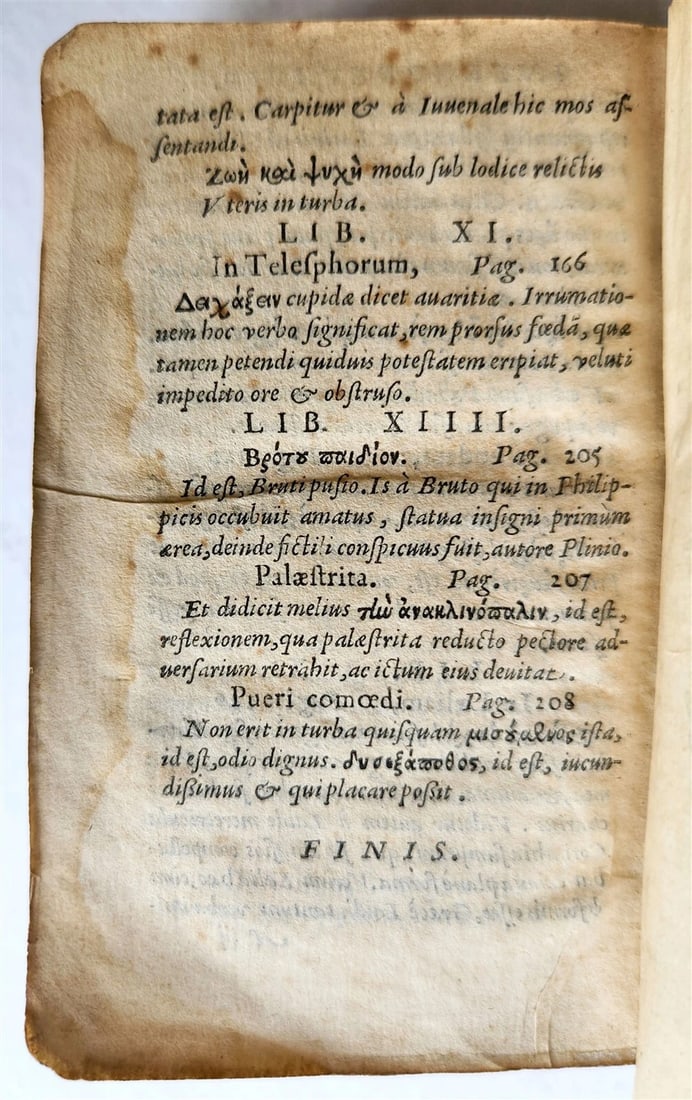 tata eſt. Carpitur & à Iuuenale hic mos aſ-
ſentandi.
Ζωὴ καὶ ψυχὴ modo ſub lodice relictis
Vteris in turba.
LIB. XI.
In Teleſphorum, Pag. 166
Λειχάζειν cupidæ dicet auaritiæ. Irrumatio-
nem hoc verbo ſignificat, rem prorſus fœdã, quæ
tamen petendi quiduis poteſtatem eripiat, veluti
impedito ore & obſtruſo.
LIB. XIIII.
Βρότου παιδίον. Pag. 205
Id eſt, Bruti puſio. Is à Bruto qui in Philip-
picis occubuit amatus, ſtatua inſigni primùm
ærea, deinde fictili conſpicuus fuit, autore Plinio.
Palæſtrita. Pag. 207
Et didicit melius τὴν ἀνακλινόπαλιν, id eſt,
reflexionem, qua palæſtrita reducto pectore ad-
uerſarium retrahit, ac ictum eius deuitat.
Pueri comœdi. Pag. 208
Non erit in turba quiſquam μισούμενος iſta,
id eſt, odio dignus. δυσεξάποθος, id eſt, iucun-
diſſimus & qui placare poſſit.
FINIS.